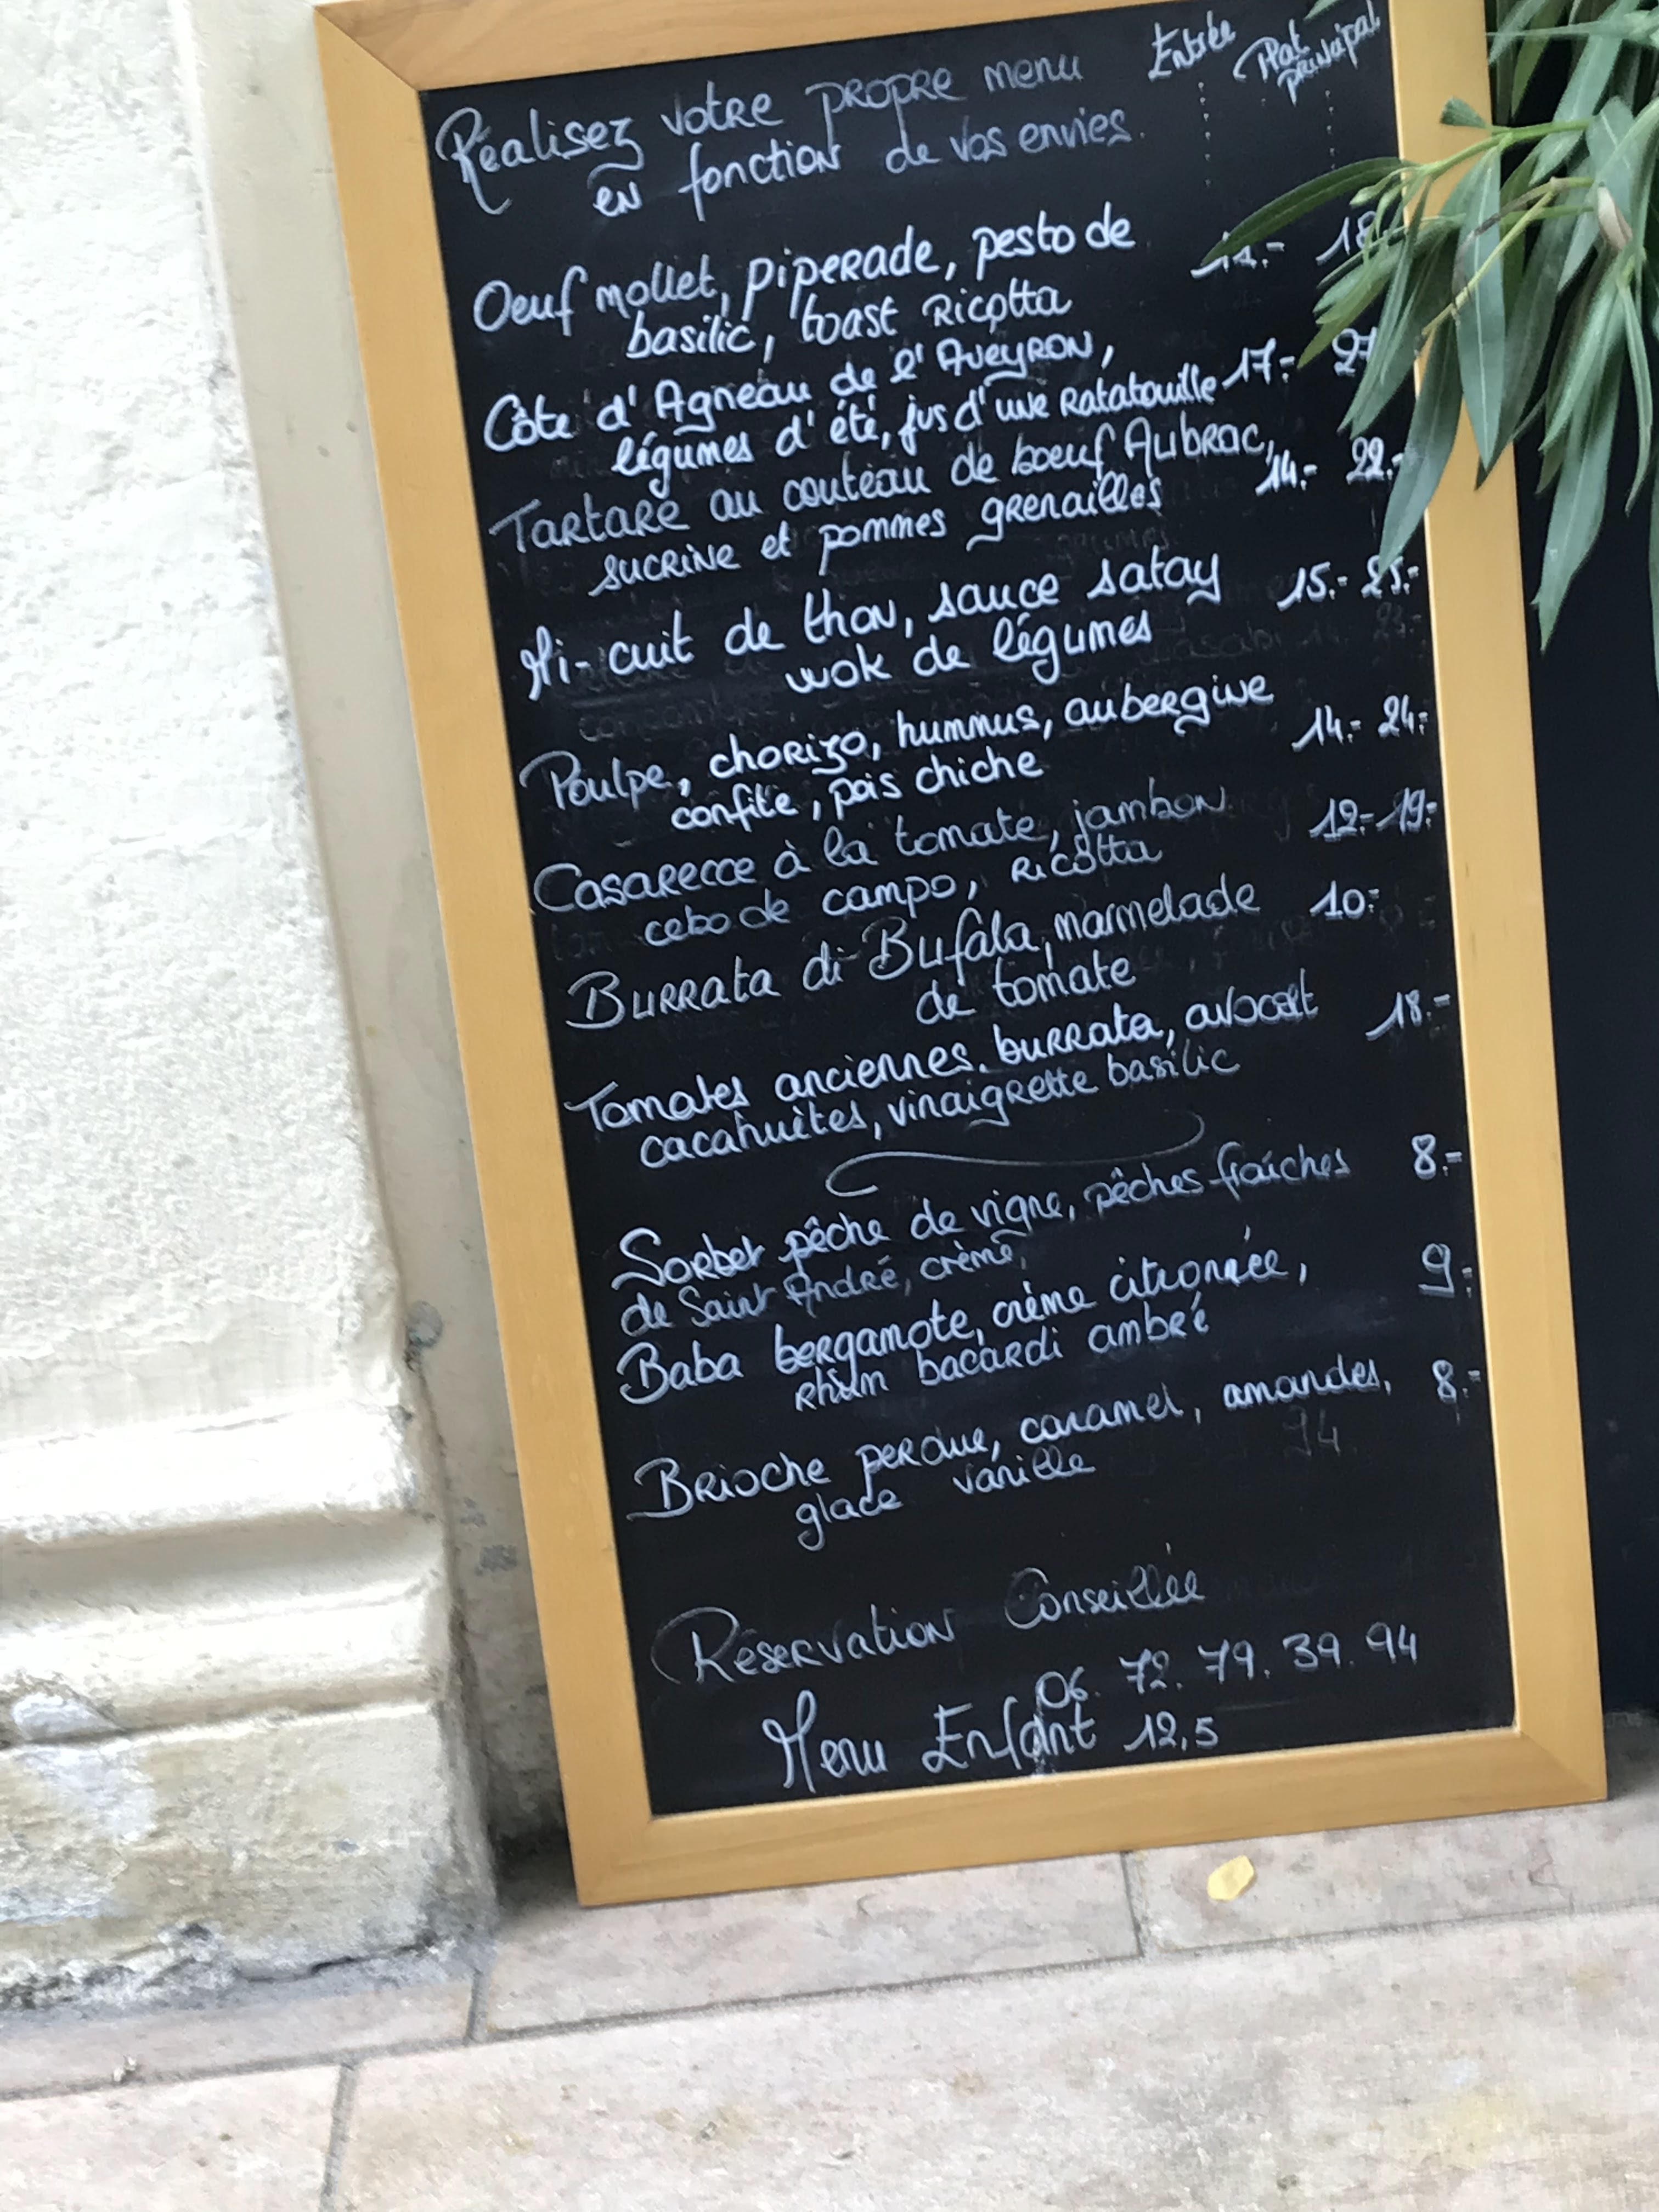 Réalisez votre propre menu Entrée Plat
en fonction de vos envies. principal
Oeuf mollet, piperade, pesto de 11.- 18
basilic, toast Ricotta
Côte d'Agneau de l'Aveyron,
légumes d'été, jus d'une Ratatouille 17.- 27
Tartare au couteau de boeuf Aubrac, 14.- 22.-
sucrine et pommes grenailles
Mi-cuit de thon, sauce satay 15.- 25.-
wok de légumes
Poulpe, chorizo, hummus, aubergine 14.- 24.-
confite, pois chiche
Casarecce à la tomate, jambon 12.- 19.-
cebo de campo, Ricotta
Burrata di Bufala, marmelade 10.-
de tomate
Tomates anciennes, burrata, avocat 18.-
cacahuètes, vinaigrette basilic
Sorbet pêche de vigne, pêches fraîches 8.-
de Saint André, crème,
Baba bergamote, crème citronnée, 9.-
rhum bacardi ambré
Brioche perdue, caramel, amandes, 8.-
glace vanille
Réservation Conseillée
06. 72. 79. 39. 94
Menu Enfant 12,5